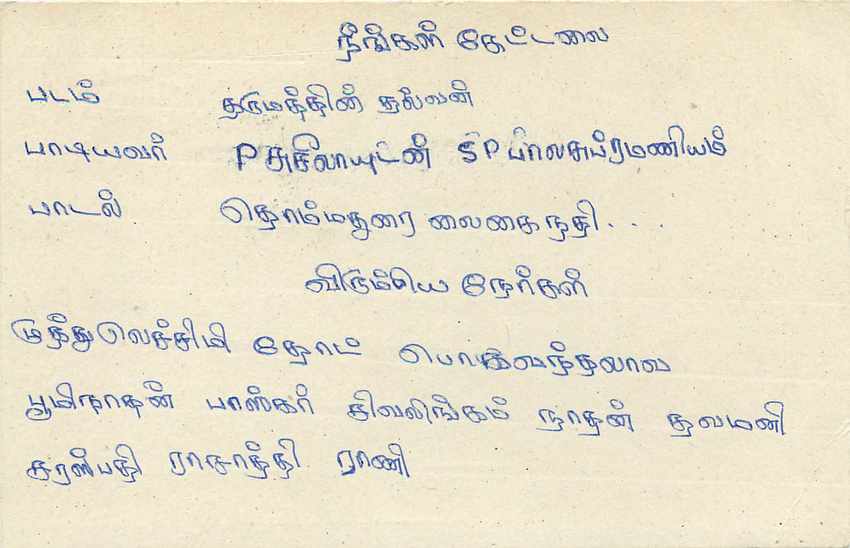 நீங்கள் கேட்டவை
படம் தருமத்தின் தலைவன்
பாடியவர் P சுசீலாயுடன் SP பாலசுப்ரமணியம்
பாடல் தென்மதுரை வைகை நதி...
விரும்பிய நேர்கள்
முத்துலெச்சிமி தோட்
பூமிநாதன் பாஸ்கர் சிவலிங்கம் நாதன் தவமணி
சரஸ்பதி ராசாத்தி ராணி